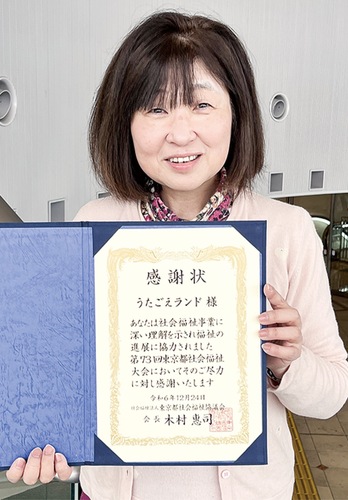 感謝状
うたごえランド 様
あなたは社会福祉事業に
深い理解を示され福祉の
進展に協力されました
第73回東京都社会福祉
大会においてそのご尽力
に対し感謝いたします
令和6年12月24日
社会福祉法人東京都社会福祉協議会
会長 木村 惠司